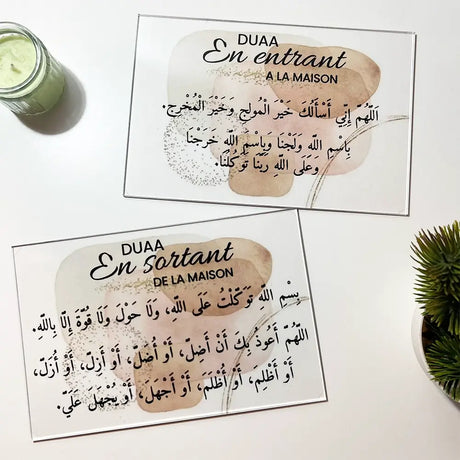 DUAA
En entrant
A LA MAISON
اَللّٰهُمَّ إِنِّي أَسْأَلُكَ خَيْرَ الْمُولِجِ وَخَيْرَ الْمُخْرَجِ.
بِاسْمِ اللهِ وَلَجْنَا وَبِاسْمِ اللهِ خَرَجْنَا
وَعَلَى اللَّهِ رَبِّنَا تَوَكَّلْنَا.
DUAA
En sortant
DE LA MAISON
بِسْمِ اللهِ تَوَكَّلْتُ عَلَى اللَّهِ، وَلَا حَوْلَ وَلَا قُوَّةَ إِلَّا بِاللَّهِ.
اللَّهُمَّ أَعُوذُ بِكَ أَنْ أَضِلَّ، أَوْ أُضَلَّ، أَوْ أَزِلَّ، أَوْ أُزَلَّ،
أَوْ أَظْلِمَ، أَوْ أُظْلَمَ، أَوْ أَجْهَلَ، أَوْ يُجْهَلَ عَلَيَّ.